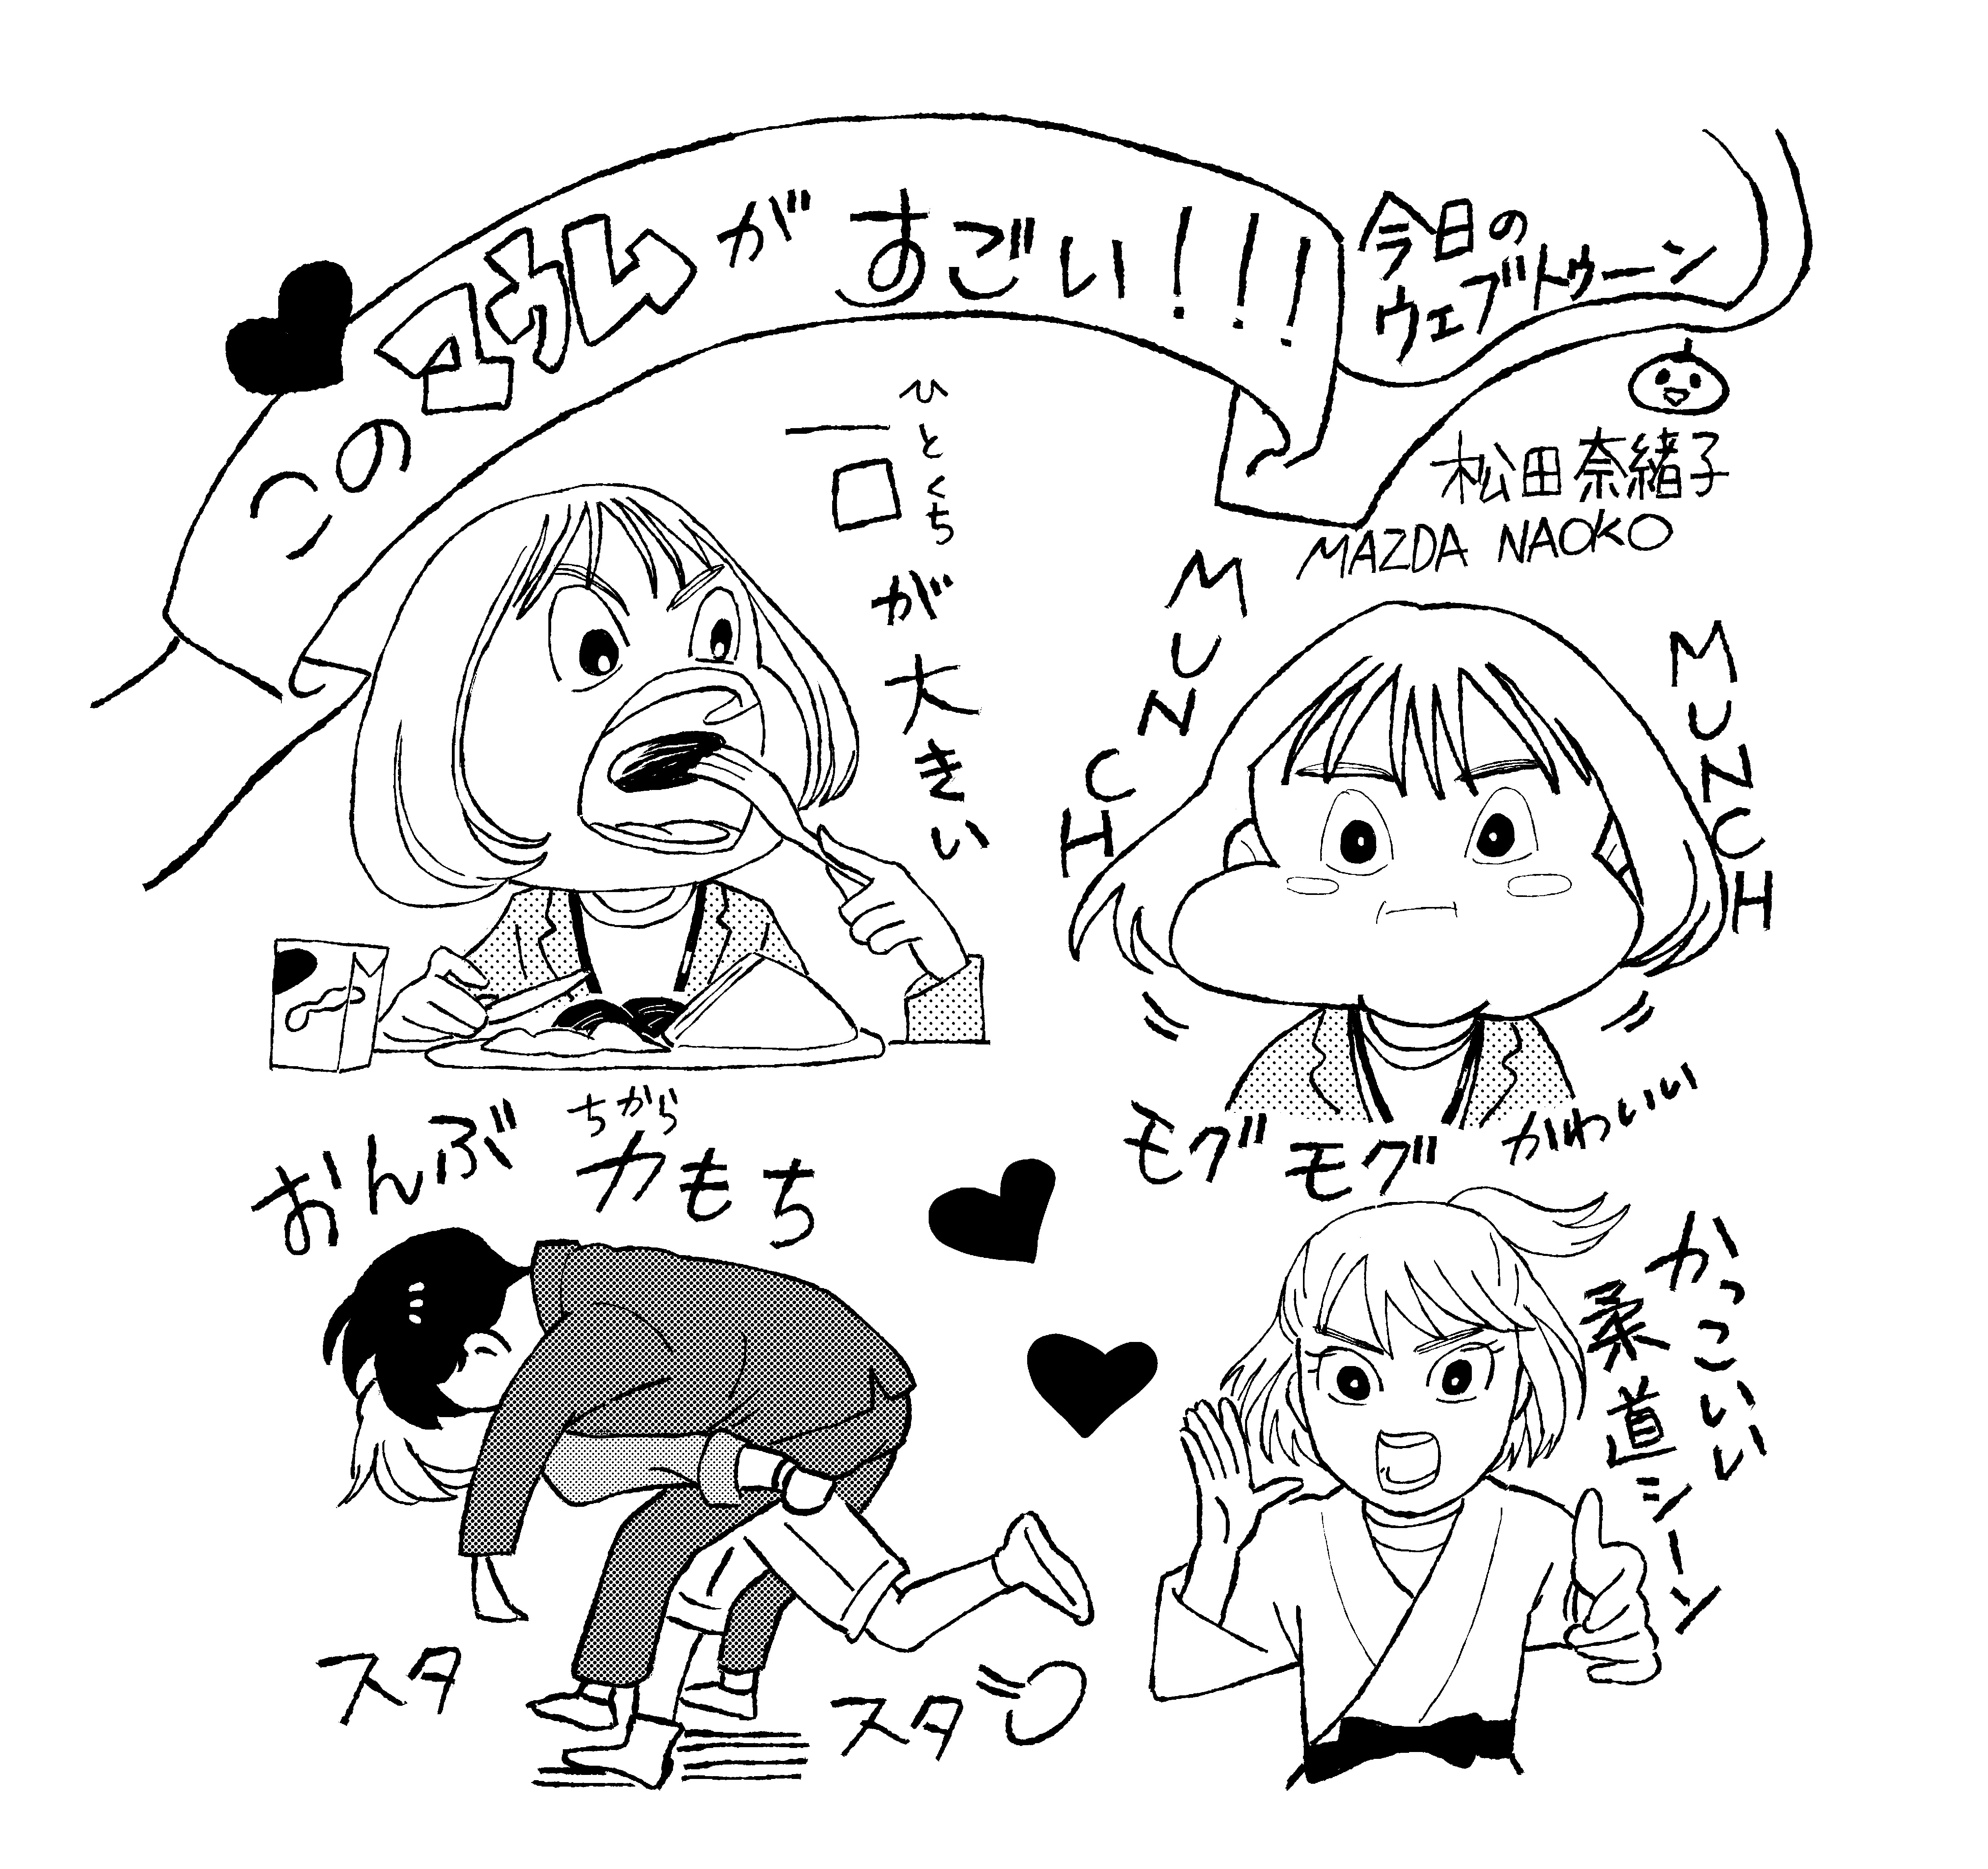 この
が すごい!!!
今日の
ウェブトゥーン
松田奈緒子
MAZDA NAOKO
ひとくち
一口が大きい
MUNCH
MUNCH
モグモグ かわいい
ちから
おんぶ 力もち
スタ
スタ
かっこいい
柔道シーン